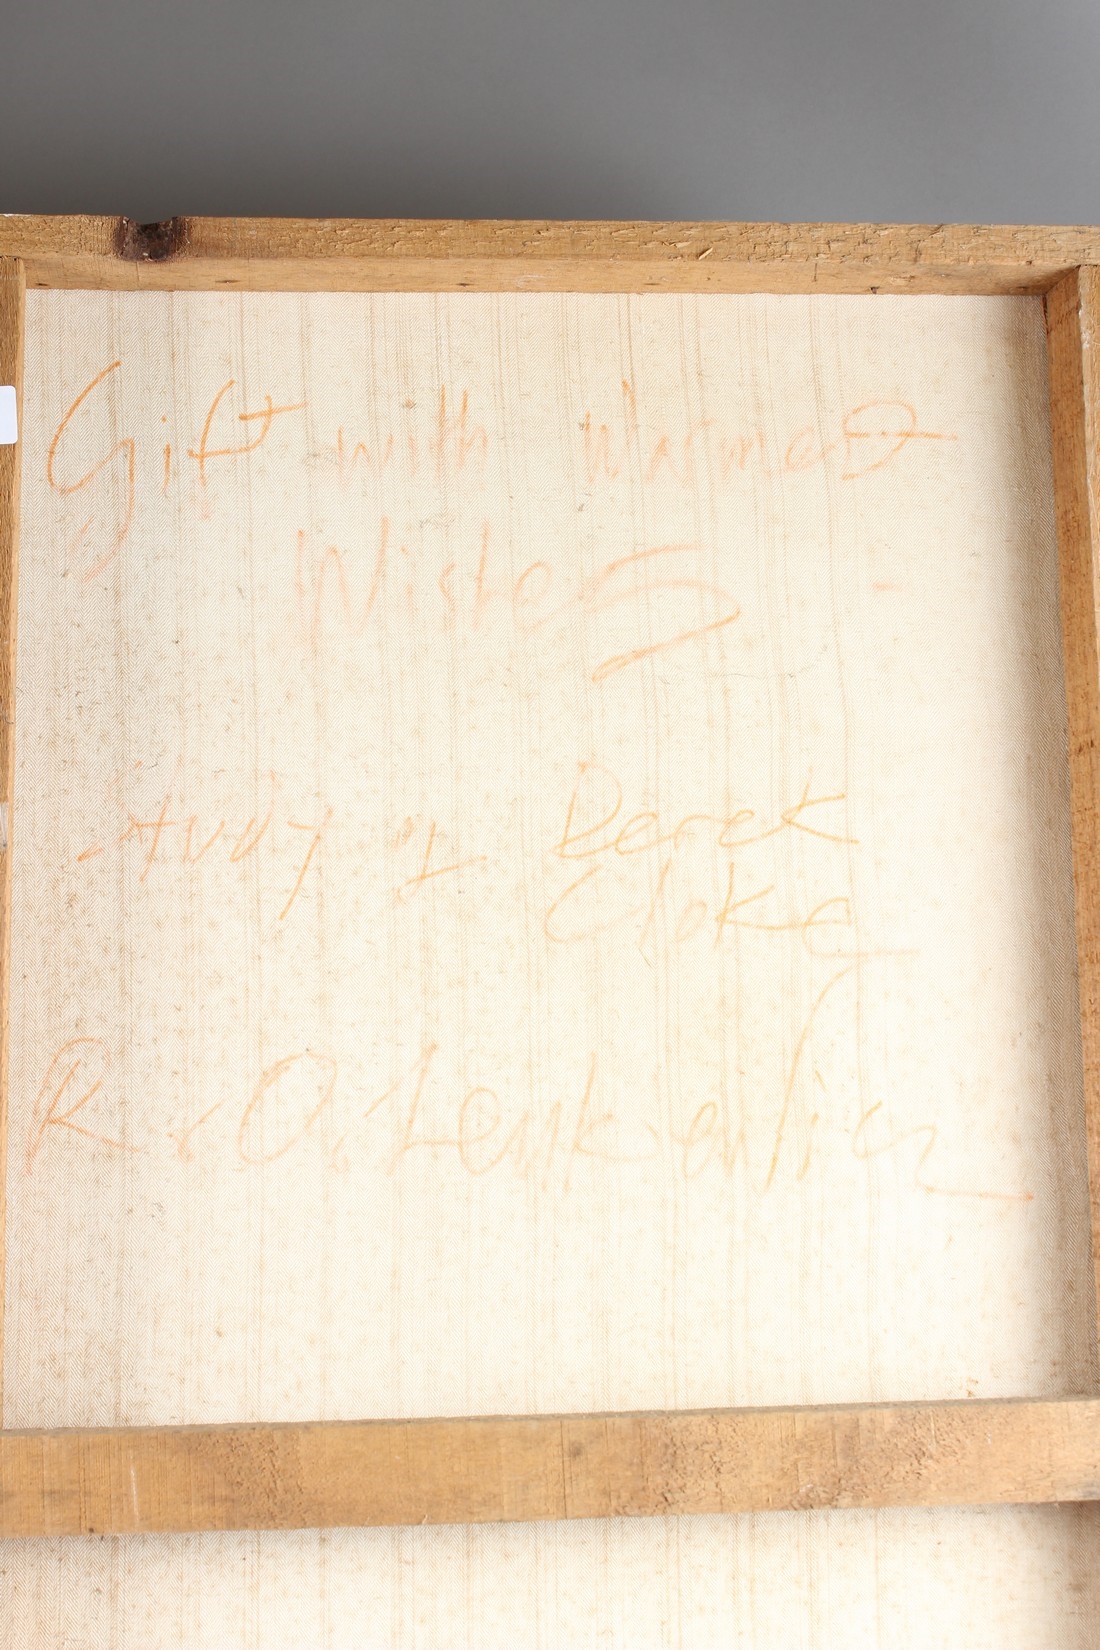 Gift with Warmest
Wishes
Study of Derek
Cloke
R. O. Lenkiewicz